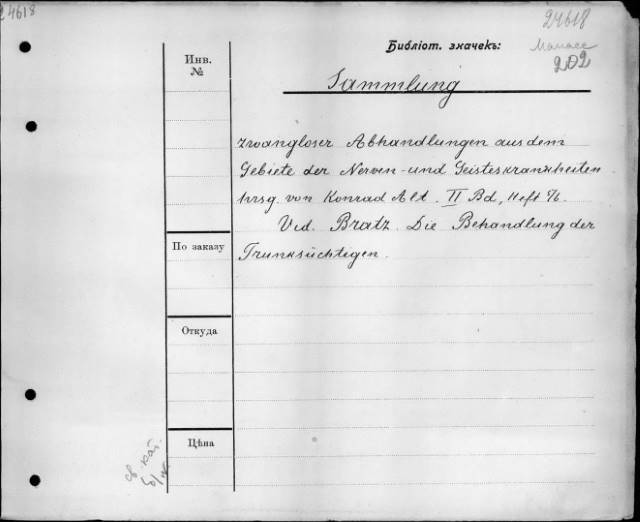 24618
24618
Библіот. значекъ:
202
Инв.
№
Sammlung
zwangloser Abhandlungen aus dem
Gebiete der Nerven- und Geisteskrankheiten
hrsg. von Konrad Alt. II Bd, Heft
Vid. Bratz. Die Behandlung der
По заказу
Trunksüchtigen.
Откуда
Цѣна